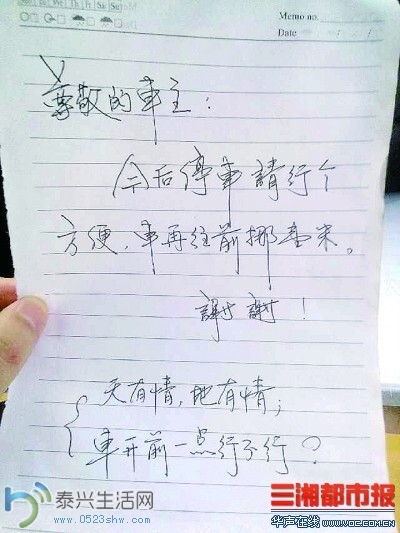 Memo no.
Date / /
尊敬的車主:
今后停車請行个
方便,車再往前挪壹米。
謝謝!
天有情,地有情;
車开前一点行不行?
泰兴生活网
www.0523shw.com
三湘都市报
华声在线 WWW.VOC.COM.CN